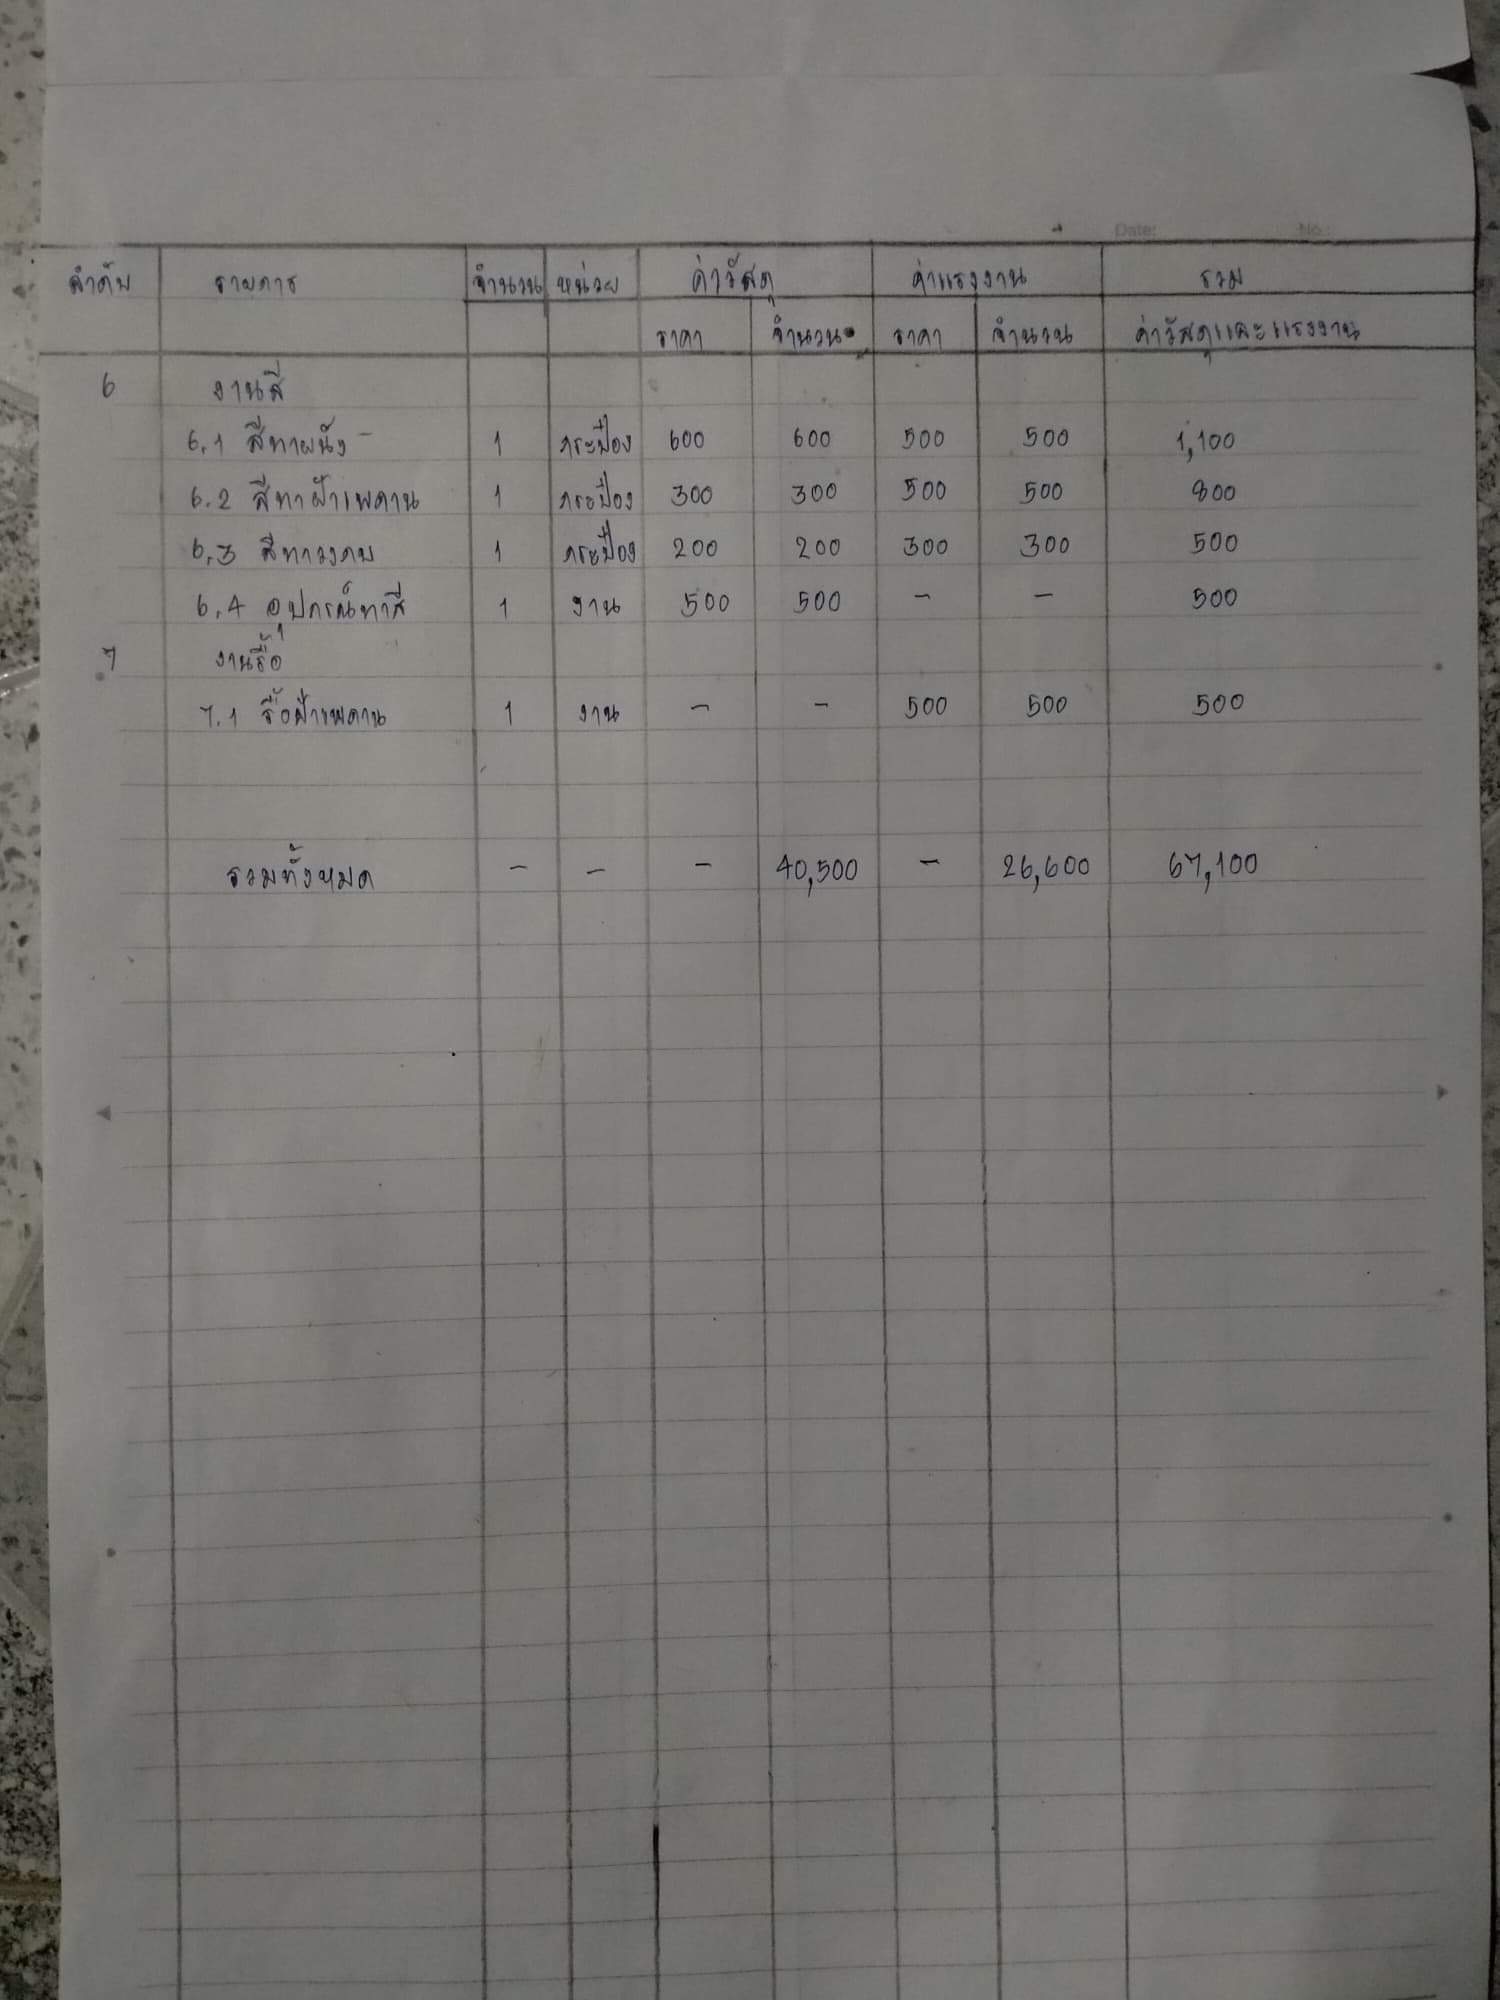 Date: No.:
ลำดับ รายการ จำนวน หน่วย ค่าวัสดุ ค่าแรงงาน รวม
ราคา จำนวน ราคา จำนวน ค่าวัสดุและแรงงาน
6 งานสี
6.1 สีทาผนัง 1 กระป๋อง 600 600 500 500 1,100
6.2 สีทาฝ้าเพดาน 1 กระป๋อง 300 300 500 500 800
6.3 สีทาวงกบ 1 กระป๋อง 200 200 300 300 500
6.4 อุปกรณ์ทาสี 1 งาน 500 500 - - 500
7 งานรื้อ
7.1 รื้อฝ้าเพดาน 1 งาน - - 500 500 500
รวมทั้งหมด - - - 40,500 - 26,600 67,100